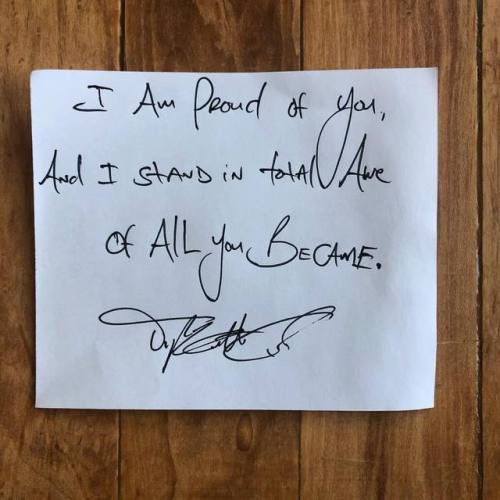 I Am Proud of you,
And I STAND iN totAl Awe
Of All you BECAME.